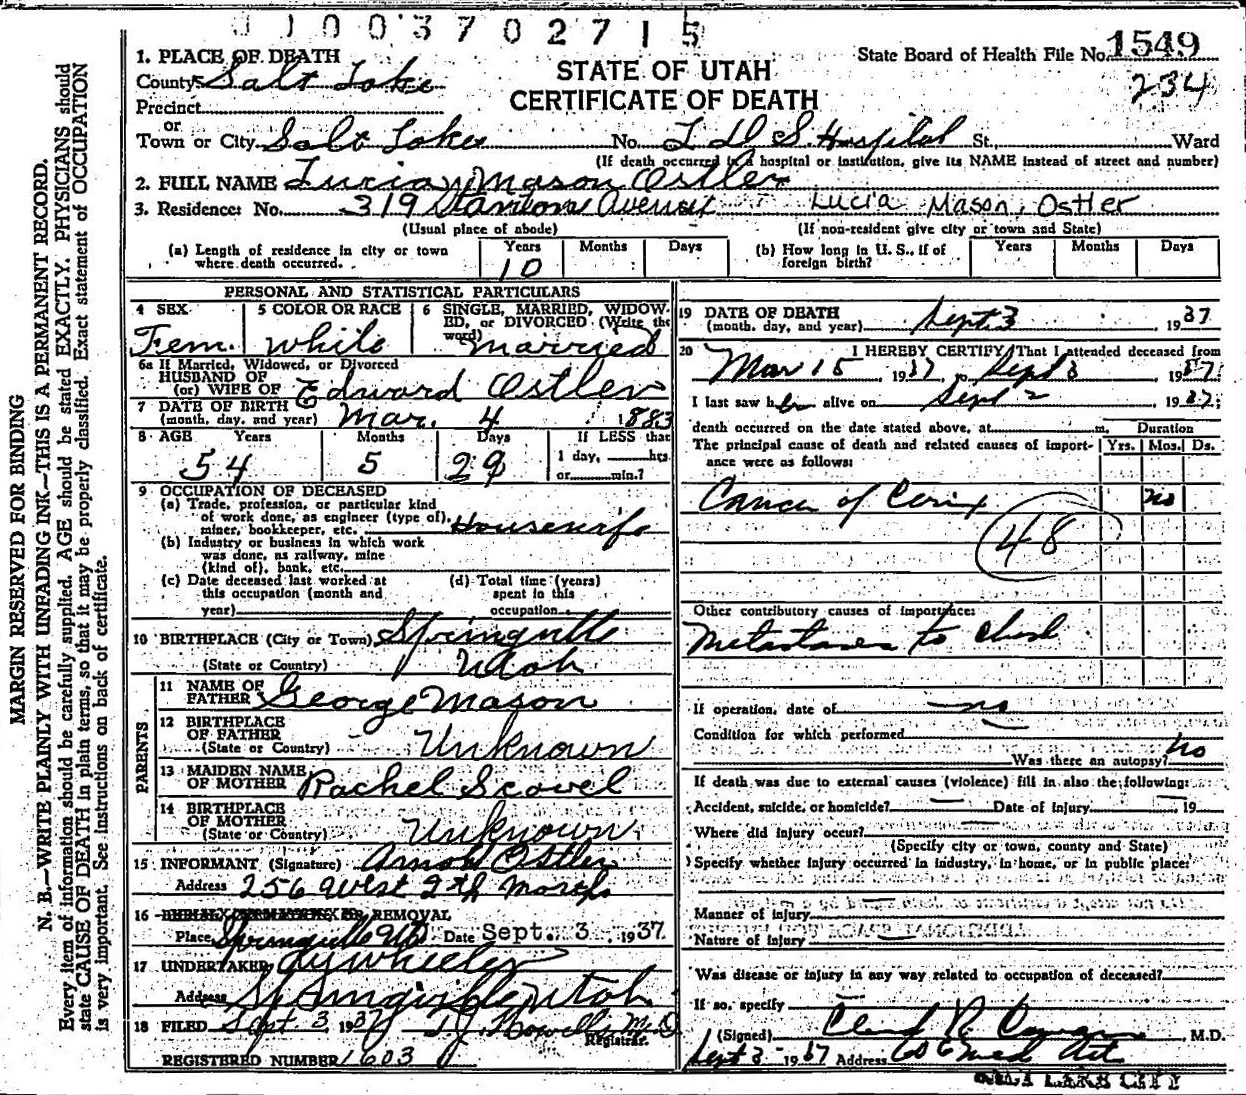 1003702715
1. PLACE OF DEATH
County Salt Lake
Precinct
or
Town or City Salt Lake No. L D S. Hospital St. Ward
(If death occurred in a hospital or institution, give its NAME instead of street and number)
STATE OF UTAH
CERTIFICATE OF DEATH
State Board of Health File No. 1549
234
2. FULL NAME Lucia Mason Ostler
3. Residence: No. 319 Avenue Lucia Mason Ostler
(Usual place of abode) (If non-resident give city or town and State)
(a) Length of residence in city or town where death occurred. Years 10 Months Days (b) How long in U. S., if of foreign birth? Years Months Days
PERSONAL AND STATISTICAL PARTICULARS
4 SEX Fem. 5 COLOR OR RACE White 6 SINGLE, MARRIED, WIDOWED, or DIVORCED (Write the word) Married
6a If Married, Widowed, or Divorced
HUSBAND OF
(or) WIFE OF Edward Ostler
7 DATE OF BIRTH
(month, day, and year) Mar. 4 1883
8 AGE Years 54 Months 5 Days 29 If LESS than
1 day, hrs.
or min.?
9 OCCUPATION OF DECEASED
(a) Trade, profession, or particular kind
of work done, as engineer (type of),
miner, bookkeeper, etc. Housewife
(b) Industry or business in which work
was done, as railway, mine
(kind of), bank, etc.
(c) Date deceased last worked at
this occupation (month and
year)
(d) Total time (years)
spent in this
occupation
10 BIRTHPLACE (City or Town) Springville
(State or Country) Utah
PARENTS
11 NAME OF
FATHER George Mason
12 BIRTHPLACE
OF FATHER
(State or Country) Unknown
13 MAIDEN NAME
OF MOTHER Rachel Scovel
14 BIRTHPLACE
OF MOTHER
(State or Country) Unknown
15 INFORMANT (Signature) Arnold Ostler
Address 256 West 2th North
16 REMOVAL
Place Springville Ut Date Sept. 3, 1937
17 UNDERTAKER Wheeler
Address Springville Utah
18 FILED Sept 3, 1937 T. J. Howells M.D.
Registrar.
REGISTERED NUMBER 1603
19 DATE OF DEATH
(month, day, and year) Sept. 3, 1937
20 I HEREBY CERTIFY, That I attended deceased from
Mar 15, 1937, Sept 3 1937
I last saw her alive on Sept 2 1937;
death occurred on the date stated above, at m. Duration
The principal cause of death and related causes of importance were as follows: Yrs. Mos. Ds.
Cancer of Cervix no
48
Other contributory causes of importance:
Metastases to chest
If operation, date of no
Condition for which performed
Was there an autopsy? no
If death was due to external causes (violence) fill in also the following:
Accident, suicide, or homicide? Date of injury 19
Where did injury occur?
(Specify city or town, county and State)
Specify whether injury occurred in industry, in home, or in public place:
Manner of injury
Nature of injury
Was disease or injury in any way related to occupation of deceased?
If so, specify
(Signed) M.D.
Sept 3 1937 Address 606 Med Art
SALT LAKE CITY
MARGIN RESERVED FOR BINDING
N. B.—WRITE PLAINLY WITH UNFADING INK—THIS IS A PERMANENT RECORD.
Every item of information should be carefully supplied. AGE should be stated EXACTLY. PHYSICIANS should
state CAUSE OF DEATH in plain terms, so that it may be properly classified. Exact statement of OCCUPATION
is very important. See instructions on back of certificate.